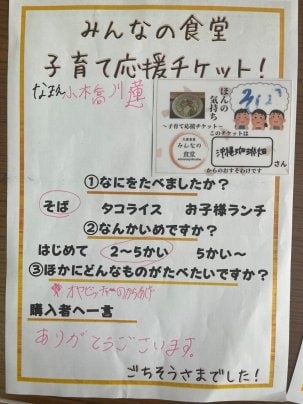 みんなの食堂
子育て応援チケット!
なまえ 小木高川蓮
ほんの
気持ち
~子育て応援チケット~
このチケットは
みんなの
食堂
沖縄珈琲畑
からのおすそわけです
①なにをたべましたか?
そば タコライス お子様ランチ
②なんかいめですか?
はじめて 2~5かい 5かい~
③ほかにどんなものがたべたいですか?
購入者へ一言
ありがとうございます。
ごちそうさまでした!